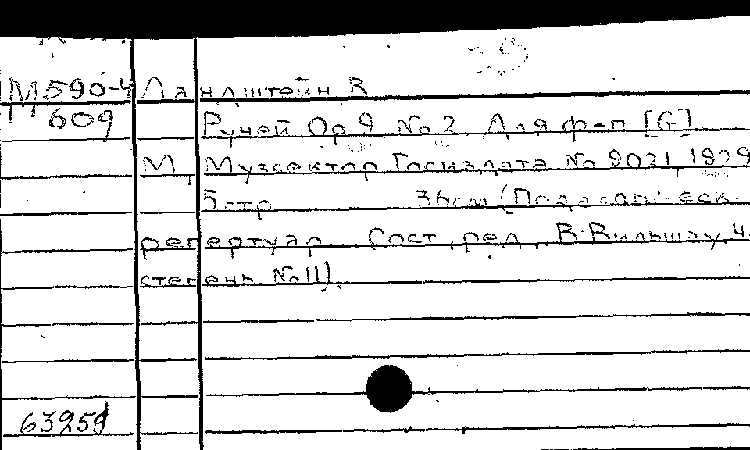 М590-4 Ландштейн В
609 Ручей Ор 9 № 2. Для ф-п [G]
М, Музсектор Госиздата № 9031, 1929
5 стр 36см (Педагогическ
репертуар Сост, ред, В. Вильшау, 4.
степень № 11).
63259